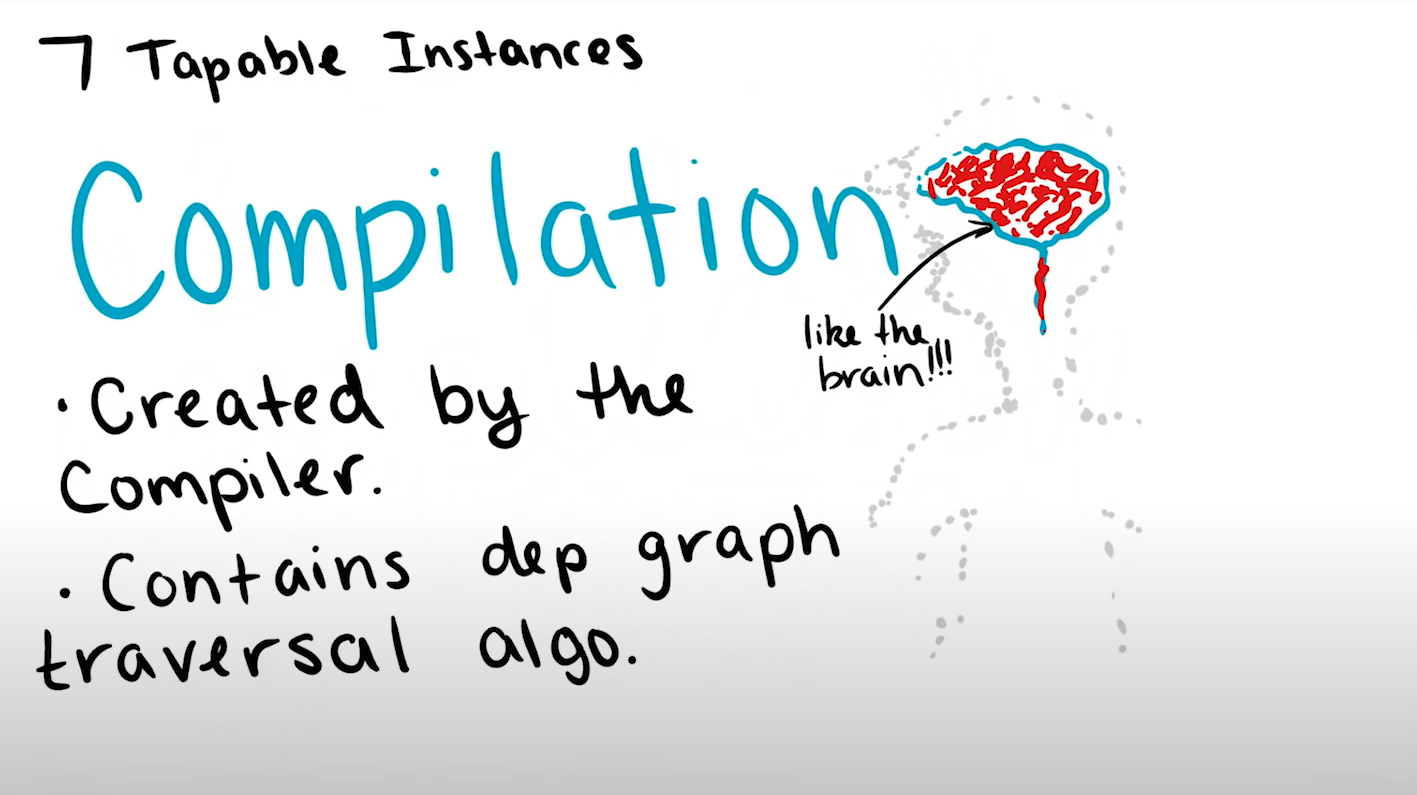 7 Tapable Instances
Compilation
like the
brain!!!
· Created by the
Compiler.
· Contains dep graph
traversal algo.